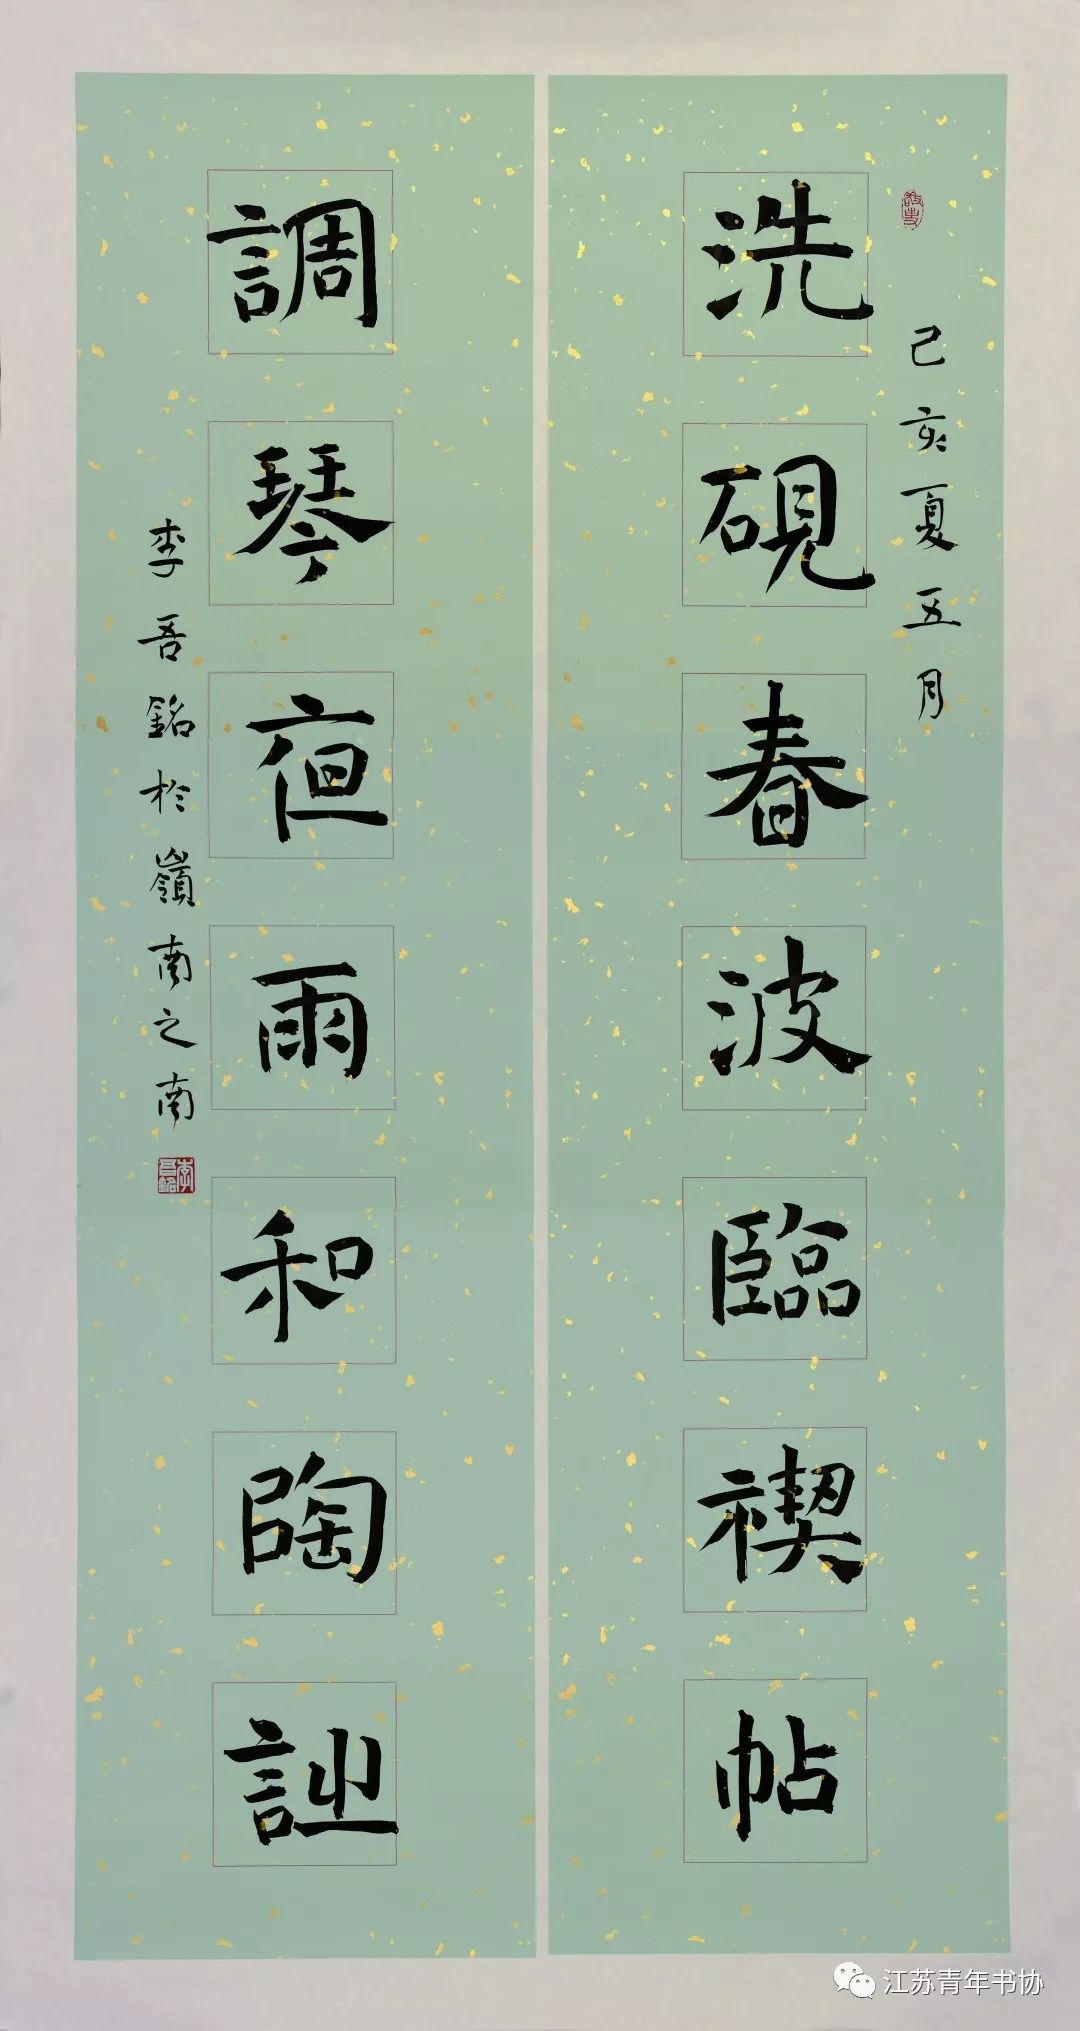 己亥夏五月
洗硯春波臨禊帖
調琴夜雨和陶詩
李吾銘於嶺南之南
江苏青年书协